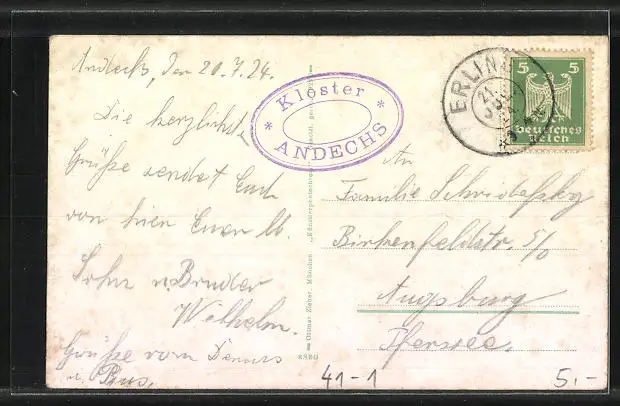 Andechs, den 20.7.24.
Die herzlichst
Grüße sendet Euch
von hier Euer lb.
Sohn u Bruder
Wilhelm.
Grüße vom
u.
* Kloster *
ANDECHS
ERLING
21
5 5
Deutsches
Reich
An
Familie
Birkenfeldstr. 5/0
Augsburg
Pfersee.
Ottmar Zieher, München
„Künstlerpostkarten
41-1
5.-